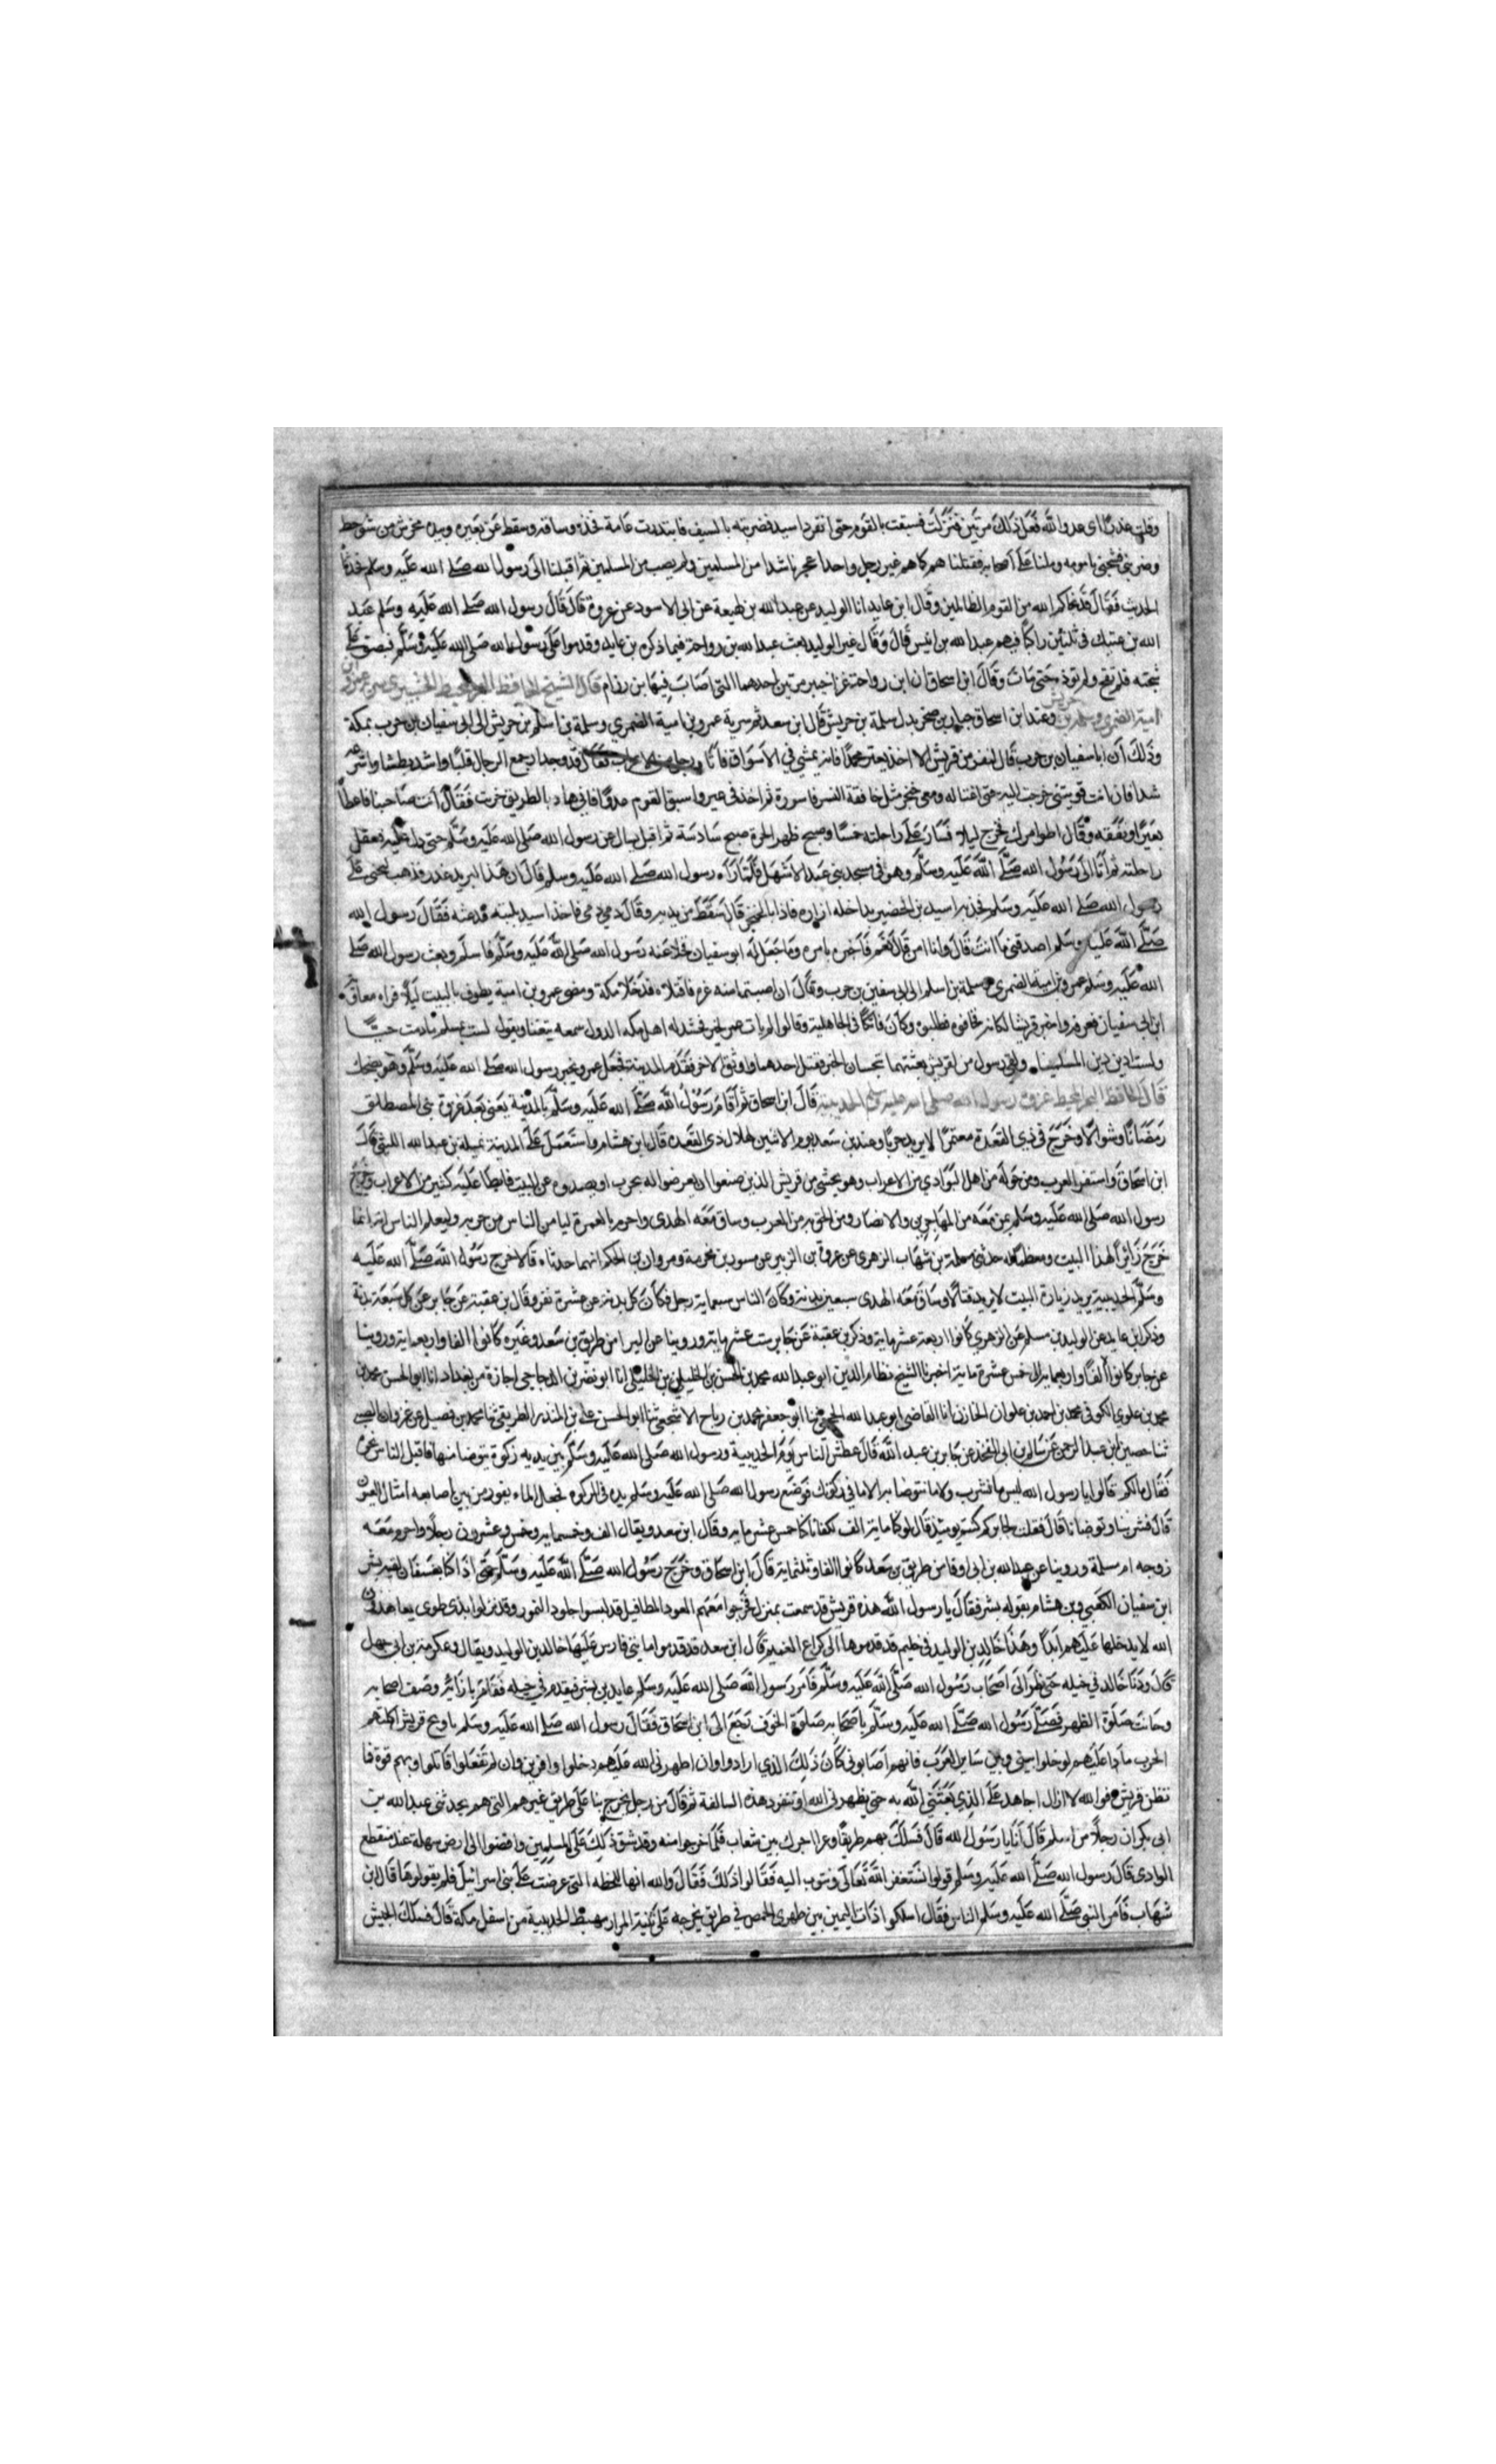 وقلت غدرا اى عدو الله فعل ذلك مرتين فنزلت فسبقت بالقوم حتى انفرد اسيد فضربته بالسيف فابتدرت عامة فخذه وساقه وسقط عن بعيره وبيده مخرش من شوحط
وضربنى فشجنى مامومة وملنا على اصحابه فقتلناهم كلهم غير رجل واحد اعجزنا شدا من المسلمين ولم يصب من المسلمين ثم اقبلنا الى رسول الله صلى الله عليه وسلم فحدثنا
الحديث فقال قد نجاكم الله من القوم الظالمين وقال ابن عايد انا الوليد عن عبد الله بن لهيعة عن ابى الاسود عن عروة قال قال رسول الله صلى الله عليه وسلم عبد
الله بن عتيك فى ثلثين راكبا فيهم عبد الله بن انيس قال وقال غير الوليد بعث عبد الله بن رواحة فيما ذكره بن عايد وقدموا على رسول الله صلى الله عليه وسلم فبصق على
شجته فلم تقح ولم توذه حتى مات وقال ابن اسحاق ان ابن رواحة غزا خيبر مرتين احدهما التى اصاب فيها بن رزام قال الشيخ
امية الضمرى وسلمة بن حريش وعند ابن اسحاق جبار بن صخر بدل سلمة بن حريش قال ابن سعد ثم سرية عمرو بن امية الضمري وسلمة بن اسلم بن حريش الى ابى سفيان بن حرب بمكة
وذلك ان ابا سفيان بن حرب قال لنفر من قريش الا احد يغتر محمدا فانه يمشي في الاسواق فاتا رجل من الاعراب فقال قد وجدت اجمع الرجال قلبا واشده بطشا واسرعه
شدا فان انت قويتنى خرجت اليه حتى اغتاله ومعى خنجر مثل خافقة النسر فاسورة ثم اخذ فى عير واسبق القوم عدوا فانى هاد بالطريق خرت فقال انت صاحبنا فاعطاه
بعيرا ونفقة وقال اطو امرك فخرج ليلا فسار على راحلته خمسا وصبح ظهر الحرة صبح سادسة ثم اقبل يسال عن رسول الله صلى الله عليه وسلم حتى دل عليه فعقل
راحلته ثم اتا الى رسول الله صلى الله عليه وسلم وهو فى مسجد بنى عبد الاشهل فلما راه رسول الله صلى الله عليه وسلم قال ان هذا ليريد غدرا فذهب ليجنى على
رسول الله صلى الله عليه وسلم فجذبه اسيد بن الحضير بداخلة ازاره فاذا بالخنجر قال سقط من يديه وقال دمي دمي فاخذ اسيد بلبته فدعته فقال رسول الله
صلى الله عليه وسلم اصدقنى ما انت قال وانا امن قال نعم فاخبره بامره وما جعل له ابو سفيان فخلا عنه رسول الله صلى الله عليه وسلم فاسلم وبعث رسول الله صلى
الله عليه وسلم عمرو بن امية الضمرى وسلمة بن اسلم الى ابى سفين بن حرب وقال ان اصبتما منه غرة فاقتلاه فدخلا مكة ومضى عمرو بن امية يطوف بالبيت ليلا فراه معاوية
ابن ابى سفيان فعرفه واخبر قريشا بمكانه فخافوه وطلبوه وكان فاتكا فى الجاهلية وقالوا لم يات عمرو لخير فحشد له اهل مكة الدول سمعه يتغنا ويقول لست بمسلم ما دمت حيا
ولست ادين دين المسلمينا ولقى رسولين لقريش بعثتهما يتجسسان الخبر فقتل احدهما واوثق الاخر فقدم المدينة فجعل عمرو يخبر رسول الله صلى الله عليه وسلم وهو يضحك
قال الحافظ غزوة رسول الله صلى الله عليه وسلم الحديبية قال ابن اسحاق ثم اقام رسول الله صلى الله عليه وسلم بالمدينة يعنى بعد غزوة بنى المصطلق
رمضانا وشوالا وخرج فى ذي القعدة معتمرا لا يريد حربا وعند بن سعد يوم الاثنين لهلال ذى القعدة قال ابن هشام واستعمل على المدينة نميلة بن عبد الله الليثى قال
ابن اسحاق واستنفر العرب ومن حوله من اهل البوادي من الاعراب وهو يخشى من قريش الذين صنعوا ان يعرضوا له بحرب او يصدوه عن البيت فابطا عليه كثير من الاعراب وخرج
رسول الله صلى الله عليه وسلم بمن معه من المهاجرين والانصار ومن لحق به من العرب وساق معه الهدى واحرم بالعمرة ليامن الناس من حربه وليعلم الناس انه انما
خرج زايرا لهذا البيت ومعظما له حدثنى محمد بن شهاب الزهرى عن عروة بن الزبير عن مسور بن مخرمة ومروان بن الحكم انهما حدثاه قالا خرج رسول الله صلى الله عليه
وسلم الحديبية يريد زيارة البيت لا يريد قتالا وساق معه الهدى سبعين بدنة وكان الناس سبعماية رجل فكان كل بدنة عن عشرة نفر وقال بن عقبة عن جابر عن كل سبعة بدنة
وذكر ابن عايد عن الوليد بن مسلم عن الزهري كانوا اربعة عشر ماية وذكر بن عقبة عن جابر ست عشرماية وروينا عن البرا من طريق بن سعد وغيره كانوا الفا واربعماية وروينا
عن جابر كانوا الفا واربعماية خمس عشرة ماية اخبرنا الشيخ نظام الدين ابو عبد الله محمد بن الحسن بن الخليلى انا ابو نصر بن الدجاجى اجازة من بغداد انا ابو الحسن محمد بن
محمد بن علوي الكوفى محمد بن احمد بن علوان الخازن انا القاضى ابو عبد الله ثنا ابو جعفر محمد بن رياح الاشجعى ثنا ابو الحسن على بن المنذر الطريقى ثنا محمد بن فضيل بن غزوان الضبى
ثنا حصين بن عبد الرحمن عن سالم بن ابى الجعد عن جابر بن عبد الله قال عطش الناس يوم الحديبية ورسول الله صلى الله عليه وسلم بين يديه ركوة يتوضا منها فاقبل الناس نحوه
فقال مالكم قالوا يا رسول الله ليس ما نشرب ولا ما نتوضا به الا ما فى ركوتك فوضع رسول الله صلى الله عليه وسلم يده فى الركوه فجعل الماء يفور من بين اصابعه امثال العيون
قال فشربنا وتوضانا قال فقلت لجابر كم كنتم يومئذ قال لو كنا ماية الف لكفانا كنا خمس عشر مايه وقال ابن سعد ويقال الف وخمسمايه وخمس وعشرون رجلا واحرم معه
زوجه ام سلمة وروينا عن عبد الله بن ابى اوفا من طريق بن سعد كانوا الفا وثلثماية قال ابن اسحاق وخرج رسول الله صلى الله عليه وسلم حتى اذا كا بعسفان لقيه بشر
ابن سفيان الكعبي وبن هشام يقوله بسر فقال يا رسول الله هذه قريش قد سمعت بمنزلك فخرجوا معهم العوذ المطافيل قد لبسوا جلود النمور وقد نزلوا بذى طوى يعاهدون
الله لا يدخلها عليهم ابدا وهذا خالد بن الوليد في خيلهم قد قدموها الى كراع الغميم قال ابن سعد قد قدموا مايتى فارس عليها خالد بن الوليد ويقال وعكرمة بن ابى جهل
قال ودنا خالد في خيله حتى نظر الى اصحاب رسول الله صلى الله عليه وسلم فامر رسول الله صلى الله عليه وسلم عباد بن بشر فيقدم في خيله فقام بازائه وصف اصحابه
وحانت صلوة الظهر فصلى رسول الله صلى الله عليه وسلم باصحابه صلوة الخوف رجع الى ابن اسحاق فقال رسول الله صلى الله عليه وسلم يا ويح قريش اكلتهم
الحرب ماذا عليهم لو خلوا بينى وبين ساير العرب فانهم اصابونى كان ذلك الذي ارادوا وان اظهرنى الله عليهم دخلوا وافرين وان لم تفعلوا قاتلوا وبهم قوة فما
تظن قريش فوالله لا ازال اجاهد على الذي بعثني الله به حتى يظهرنى الله او تنفرد هذه السالفة ثم قال من رجل يخرج بنا على طريق غير هم التى هم بحدثنى عبد الله بن
ابى بكر ان رجلا من اسلم قال انا يا رسول الله قال فسلك بهم طريقا وعرا اجرل بين شعاب فلما خرجوا منه وقد شق ذلك على المسلمين وافضوا الى ارض سهلة عند منقطع
الوادى قال رسول الله صلى الله عليه وسلم قولوا نستغفر الله تعالى ونتوب اليه فقالوا ذلك فقال والله انها للحطه التى عرضت على بنى اسرائيل فلم يقولوها قال ابن
شهاب فامر النبى صلى الله عليه وسلم الناس فقال اسلكوا ذات اليمين بين ظهرى الحمص فى طريق يخرجه على ثنية المرار مهبط الحديبية من اسفل مكة قال فسلك الجيش